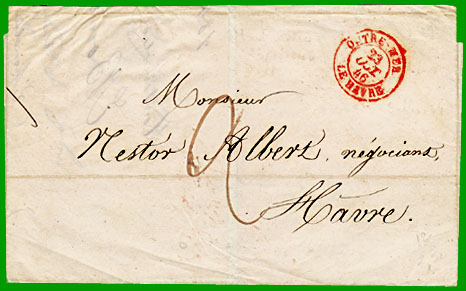 OUTRE-MER
23
OCT
46
LE HAVRE
Monsieur
Nestor Albert, négociant,
2
Hâvre.